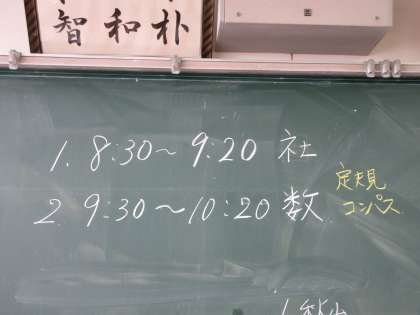 智和朴
1. 8:30～9:20 社
定規
2. 9:30～10:20 数
コンパス